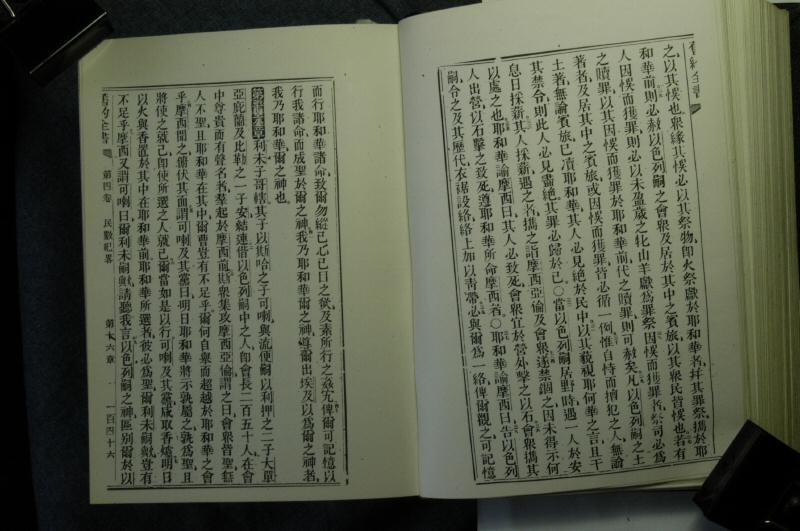 舊約全書
之以其悞也眾緣其悞必以其祭物即火祭獻於耶和華者幷其罪祭攜於耶
和華前則必赦以色列嗣之會眾及居於其中之賓旅以其眾民皆悞也若有
人因悞而獲罪則必以未盈歲之牝山羊獻爲罪祭因悞而獲罪者祭司必爲
之贖罪以其因悞而獲罪於耶和華前代之贖罪則可赦矣凡以色列嗣之土
著者及居其中之賓旅或因悞而獲罪皆必循一例惟自恃而擅犯之人無論
土著無論賓旅已瀆耶和華其人必見絕於民中以其藐視耶和華之言且干
其禁令則此人必見盡絕其罪必歸於己〇當以色列嗣居野時遇一人於安
息日採薪其人採薪遇之者攜之詣摩西亞倫及會眾遂禁錮之因未得示何
以處之也耶和華諭摩西曰其人必致死會眾宜於營外擊之以石會眾攜其
人出營以石擊之致死遵耶和華所命摩西者〇耶和華諭摩西曰告以色列
嗣令之及其歷代衣裾設綏綏上加以靑帶必與爾爲一綏俾爾觀之可記憶
而行耶和華諸命致爾勿縱己心己目之欲及素所行之姦宄俾爾可記憶以
行我諸命而成聖於爾之神我乃耶和華爾之神導爾出埃及以爲爾之神者
我乃耶和華爾之神也
第十六章利未子哥轄其子以斯哈之子可喇與流便嗣以利押之二子大單
亞庇蘭及比勒之一子安結連偕以色列嗣中之人即會長二百五十人在會
中尊貴而有聲名者羣起於摩西前斯眾集攻摩西亞倫謂之曰會眾皆聖無
人不聖且耶和華在其中爾曹豈有不足乎爾何自舉而超越於耶和華之會
乎摩西聞之俯伏其面謂可喇及其黨曰明日耶和華將示孰屬之孰爲聖且
將使之就己即使所選之人就己爾當如是以行可喇及其黨咸取香爐明日
以火與香置於其中在耶和華前耶和華所選者彼必爲聖利未嗣歟豈有
不足乎摩西又謂可喇曰爾利未嗣歟請聽我言以色列嗣之神區別爾於以
舊約全書 第四卷 民數紀畧 第十六章 一百四十六